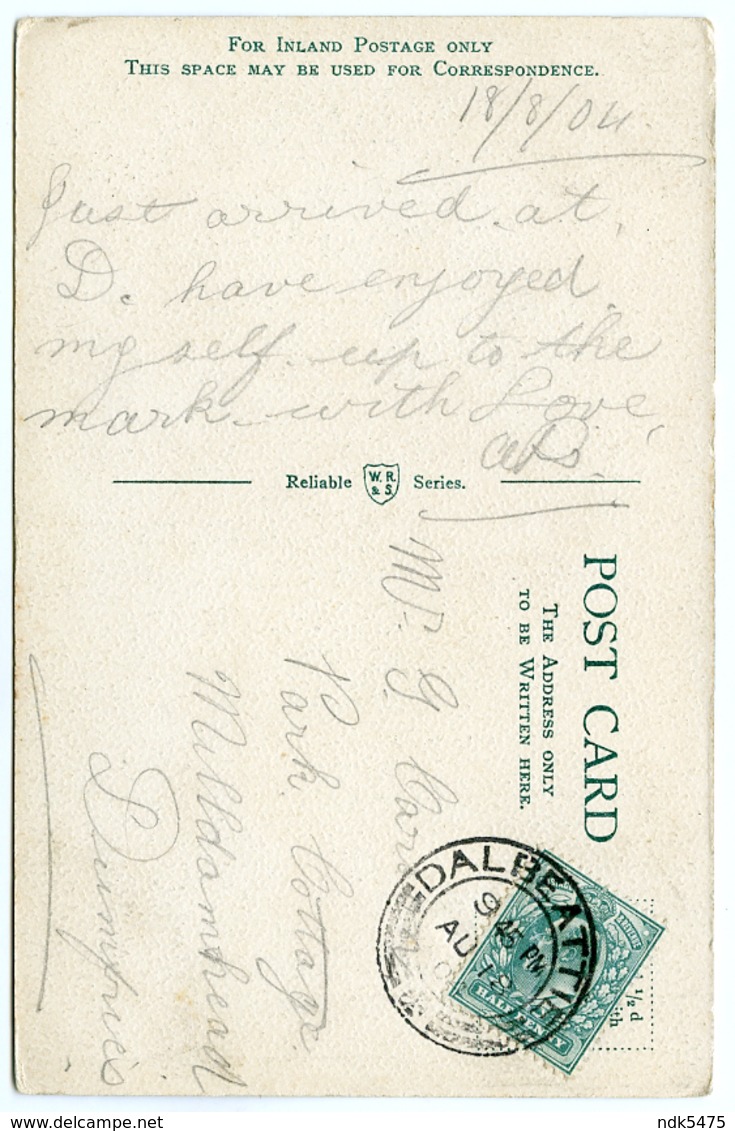 FOR INLAND POSTAGE ONLY
THIS SPACE MAY BE USED FOR CORRESPONDENCE.
18/8/04
Just arrived at
D. have enjoyed
my self up to the
mark with Love,
Reliable W.R. & S. Series.
POST CARD
THE ADDRESS ONLY
TO BE WRITTEN HERE.
Mr. G.
Park Cottage
Milldamhead
Dumfries
DALBEATTIE
9 45 PM
AU 18
HALF PENNY
½ d
ndk5475